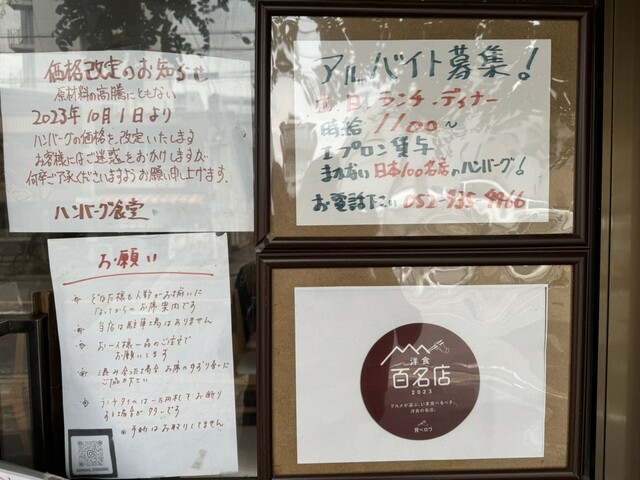 価格改定のお知らせ
原材料の高騰にともない
2023年10月1日より
ハンバーグの価格を改定いたします
お客様にはご迷惑をおかけしますが
何卒ご了承くださいますようお願い申し上げます。
ハンバーグ食堂
アルバイト募集!
土、日、ランチ・ディナー
時給 1100~
エプロン貸与
まかない 日本100名店のハンバーグ!
お電話下さい 052-935-9966
お願い
どなた様も人数がお揃いに
なってからのお席案内です
当店は駐車場はありません
お一人様一品のご注文で
お願いします
混み合った場合お席のゆずり合いに
ご協力下さい
ランチタイムは
お断り
する場合が
です
予約はお取りしてません
洋食
百名店
2023
グルメが選ぶ、いま食べるべき、
洋食の名店。
食べログ